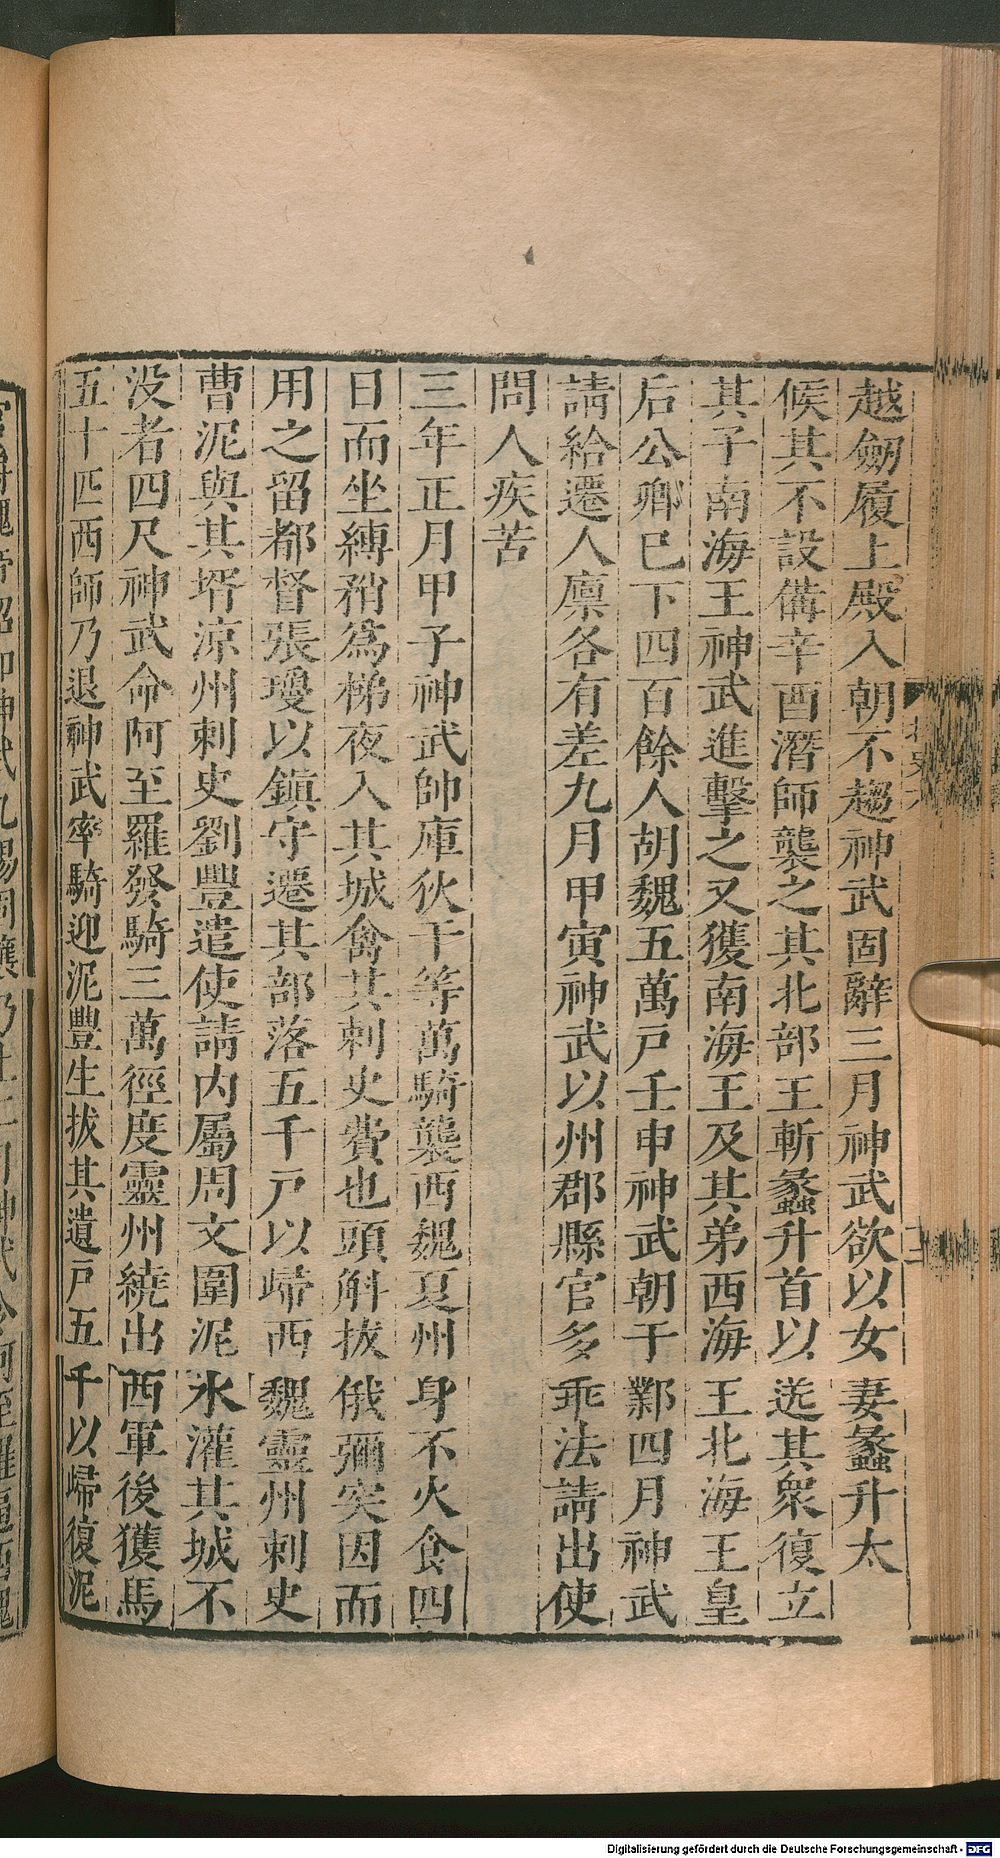 越劒履上殿入朝不趨神武固辭三月神武欲以女妻蠡升太
候其不設備辛酉潛師襲之其北部王斬蠡升首以送其衆復立
其子南海王神武進擊之又獲南海王及其弟西海王北海王皇
后公卿巳下四百餘人胡魏五萬戸壬申神武朝于鄴四月神武
請給遷人廪各有差九月甲寅神武以州郡縣官多乖法請出使
問人疾苦
三年正月甲子神武帥庫狄干等萬騎襲西魏夏州身不火食四
日而坐縛矟爲梯夜入其城禽其刺史費也頭斛拔俄彌突因而
用之留都督張瓊以鎭守遷其部落五千戸以歸西魏靈州刺史
曹泥與其壻涼州刺史劉豐遣使請内屬周文圍泥水灌其城不
没者四尺神武命阿至羅發騎三萬徑度靈州繞出西軍後獲馬
五十匹西師乃退神武率騎迎泥豐生拔其遺戸五千以歸復泥
北史六
Digitalisierung gefördert durch die Deutsche Forschungsgemeinschaft - DFG